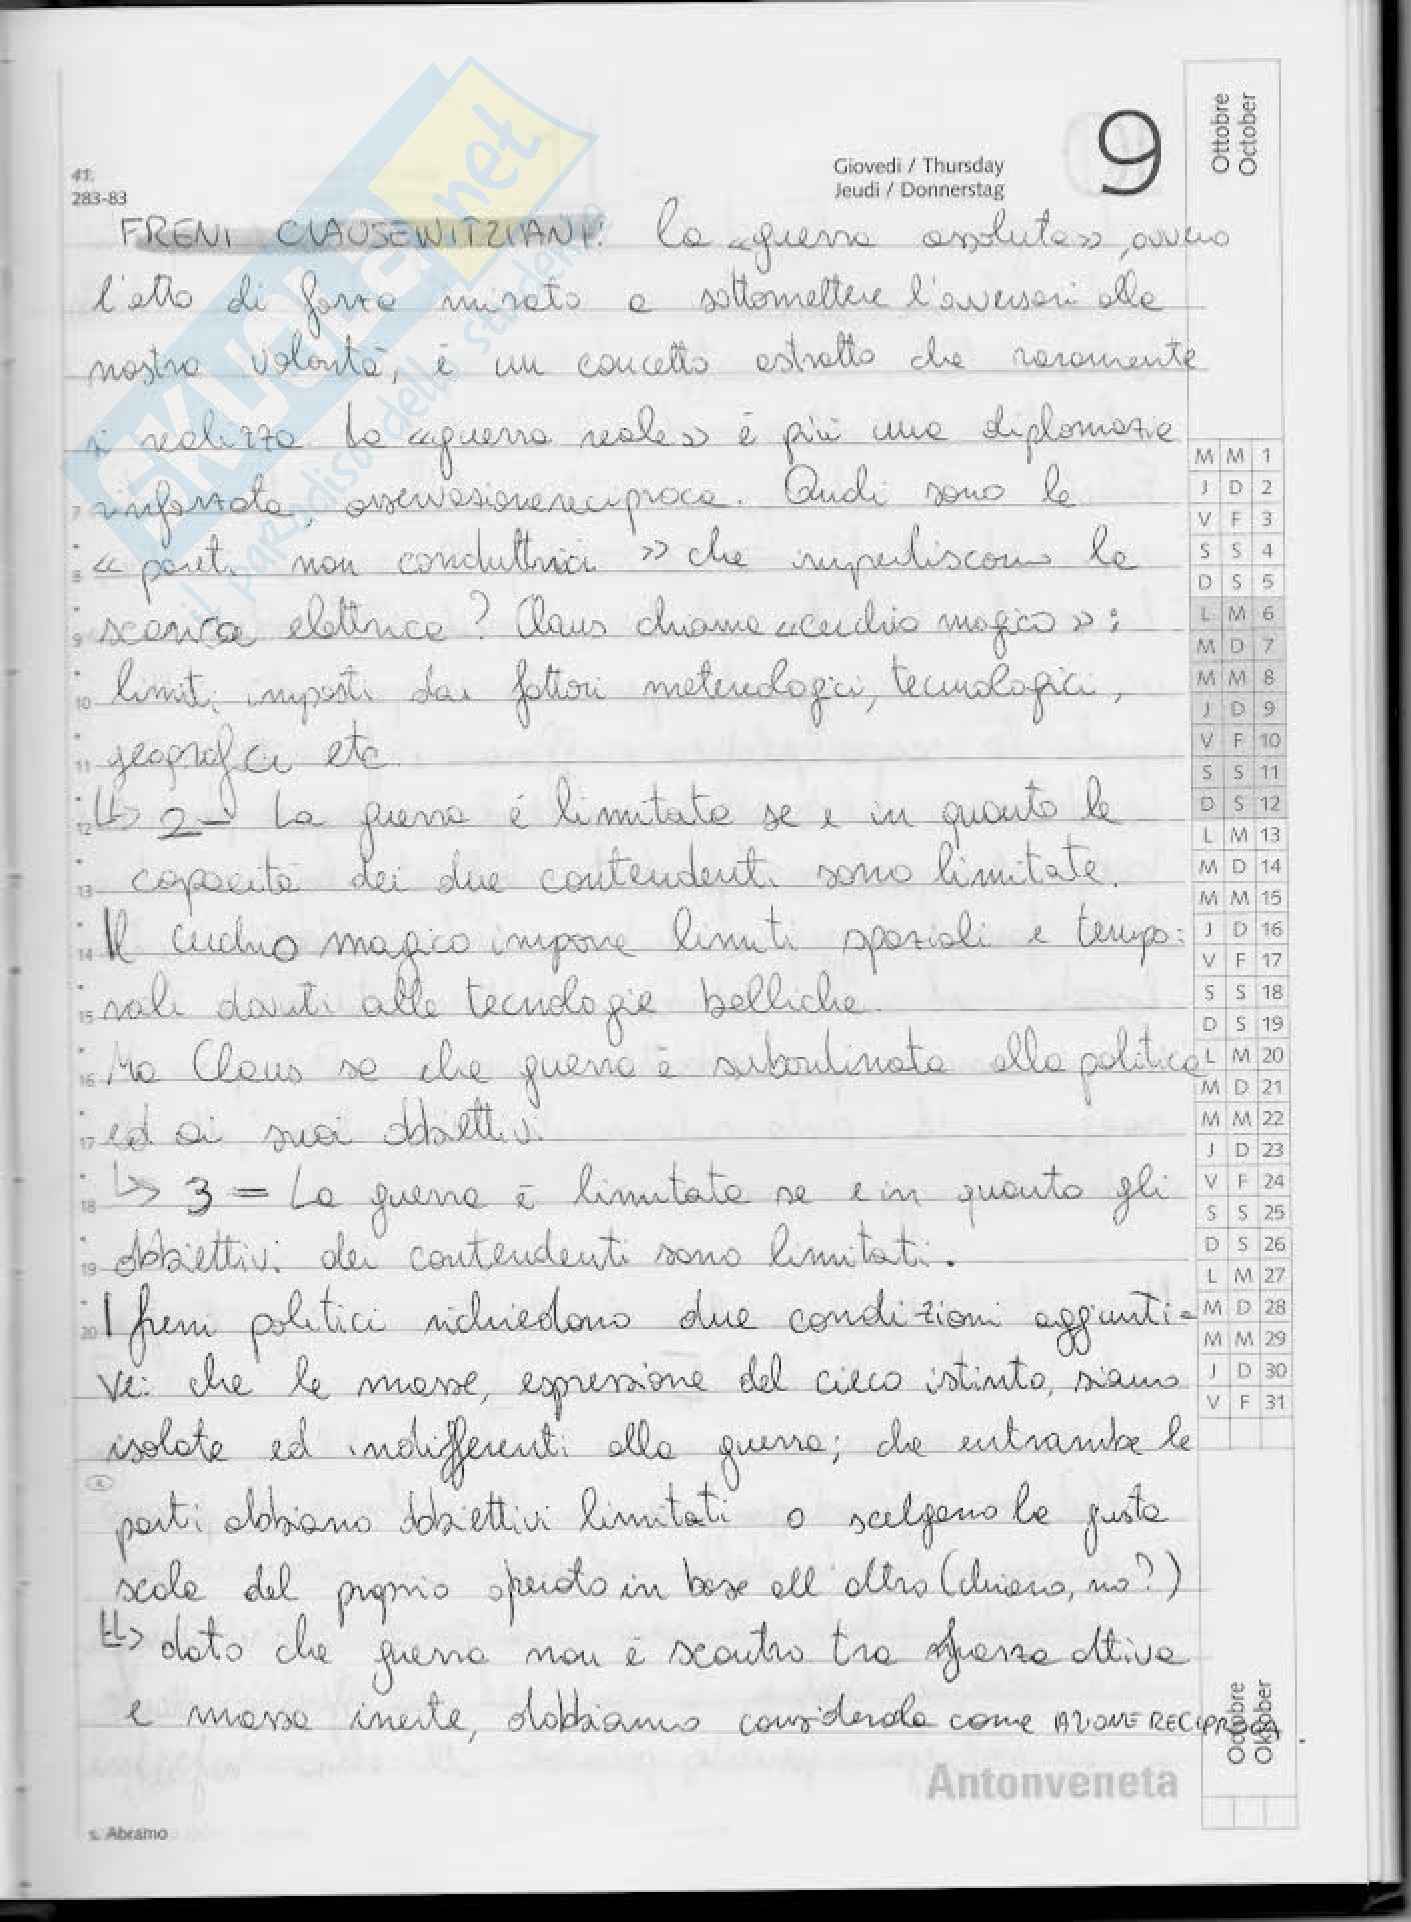 Ottobre
October
9
Giovedi / Thursday
Jeudi / Donnerstag
41.
283-83
SKUOLA.net
il paradiso dello studente
FRENI CLAUSEWITZIANI: la «guerra assoluta», ovvero
l'atto di forza mirato a sottomettere l'avversari alla
nostra volontà, è un concetto astratto che raramente
si realizza. La «guerra reale» è più una diplomazia
rinforzata, osservazione reciproca. Quali sono le
7
« pareti non conduttrici » che impediscono la
8
scarica elettrica? Claus chiama «cerchio magico»:
9
limiti imposti dai fattori metereologici, tecnologici,
10
geografici etc.
11
↳ 2- La guerra è limitata se e in quanto le
12
capacità dei due contendenti sono limitate.
13
Il cerchio magico impone limiti spaziali e tempo:
14
rali dovuti alle tecnologie belliche.
15
Ma Claus sa che guerra è subordinata alla politica
16
ed ai suoi obbiettivi
17
↳ 3 = La guerra è limitata se e in quanto gli
18
obbiettivi dei contendenti sono limitati.
19
I freni politici richiedono due condizioni aggiunti=
20
ve: che le masse, espressione del cieco istinto, siano
isolate ed indifferenti alla guerra; che entrambe le
parti abbiano obbiettivi limitati o scelgano la giusta
scala del proprio operato in base all'altro (chiaro, no?)
↳ dato che guerra non è scontro tra forza attiva
e massa inerte, dobbiamo considerarla come AZIONE RECIPROCA.
M M 1
J D 2
V F 3
S S 4
D S 5
L M 6
M D 7
M M 8
J D 9
V F 10
S S 11
D S 12
L M 13
M D 14
M M 15
J D 16
V F 17
S S 18
D S 19
L M 20
M D 21
M M 22
J D 23
V F 24
S S 25
D S 26
L M 27
M D 28
M M 29
J D 30
V F 31
Octobre
Oktober
Antonveneta
s. Abramo